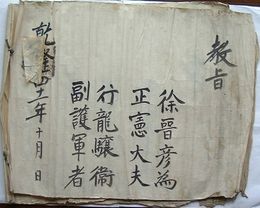 敎旨
徐晉彦爲
正憲大夫
行龍驤衛
副護軍者
乾隆十一年十月 日